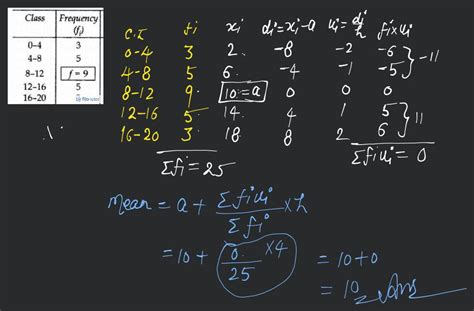 Class Frequency
(fᵢ)
0-4 3
4-8 5
8-12 f = 9
12-16 5
16-20
C.I fi xi di=xi-a ui=di/h fixui
0-4 3 2 -8 -2 -6
4-8 5 6 -4 -1 -5 } -11
8-12 9 10=a 0 0 0
12-16 5 14 4 1 5
16-20 3 18 8 2 6 } 11
Σfi=25 Σfiui=0
mean = a + Σfiui/Σfi × h
= 10 + 0/25 × 4 = 10+0
= 10 Ans